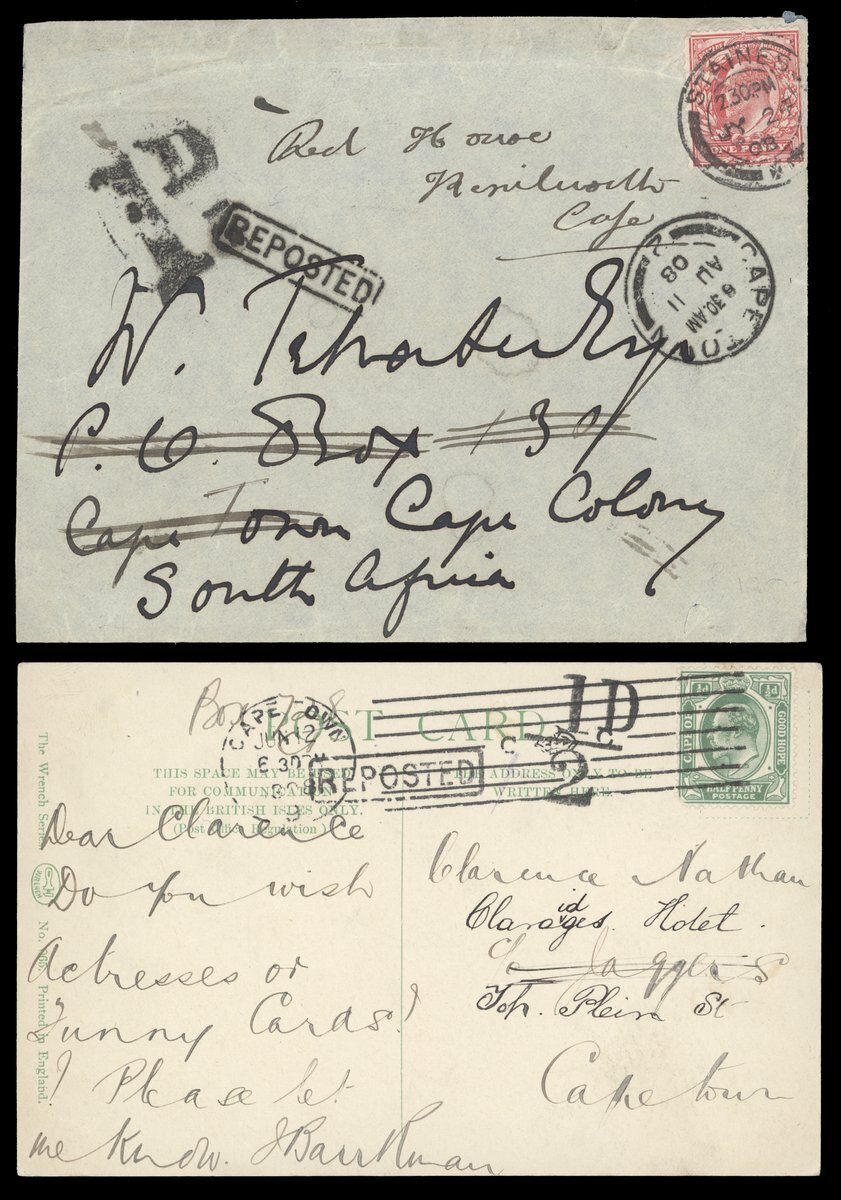 STAINES
2.30PM
JY 2
08
ONE PENNY
1D.
REPOSTED
Red House
Kenilworth
Cape
CAPE TOWN
6.30 AM
AU 11
08
2
W. Esq
P. O. Box 13
Cape Town Cape Colony
South Africa
Box 7
POST CARD
CAPE TOWN
JUN 12
6 30
REPOSTED
1D
2
½d ½d
CAPE OF GOOD HOPE
HALFPENNY
POSTAGE
THIS SPACE MAY BE USED
FOR COMMUNICATION
IN THE BRITISH ISLES ONLY.
(Post Office Regulation)
THE ADDRESS ONLY TO BE
WRITTEN HERE.
The Wrench Series
No. Printed in England.
Dear Clarence
Do you wish
Actresses or
Funny Cards?
! Please let
me know.
Clarence Nathan
Claraidges. Hotel.
c/o Jaggers
Toh. Plein St
Cape town